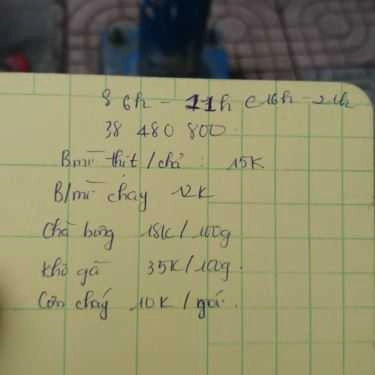 S 6h - 11h C 16h - 21h
38 480 800
B mì thịt / chả : 15K
B/mì chay 12K
Chà bông 18K / 100g
Khô gà 35K / 100g.
Cơm cháy 10K / gói.